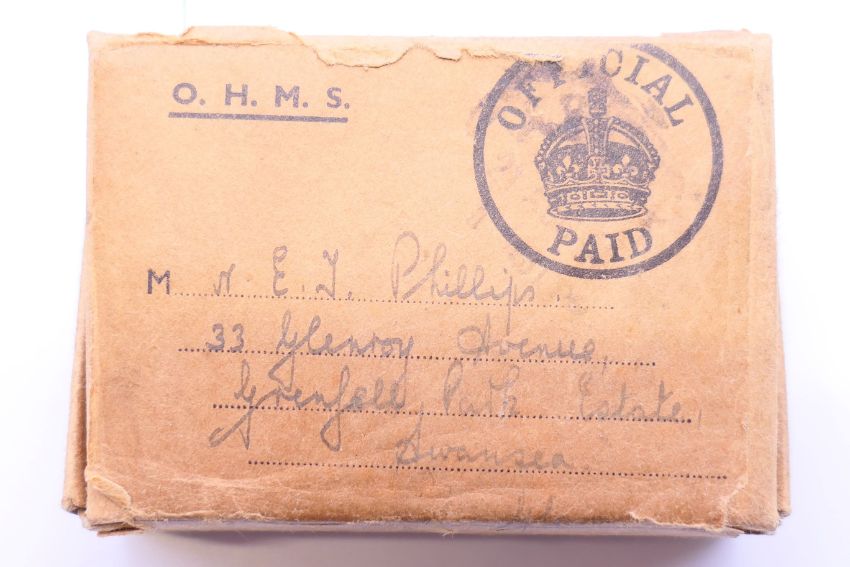 O. H. M. S.
OFFICIAL
PAID
Mr E. J. Phillips.
33 Glenroy Avenue,
Grenfell Park Estate,
Swansea.